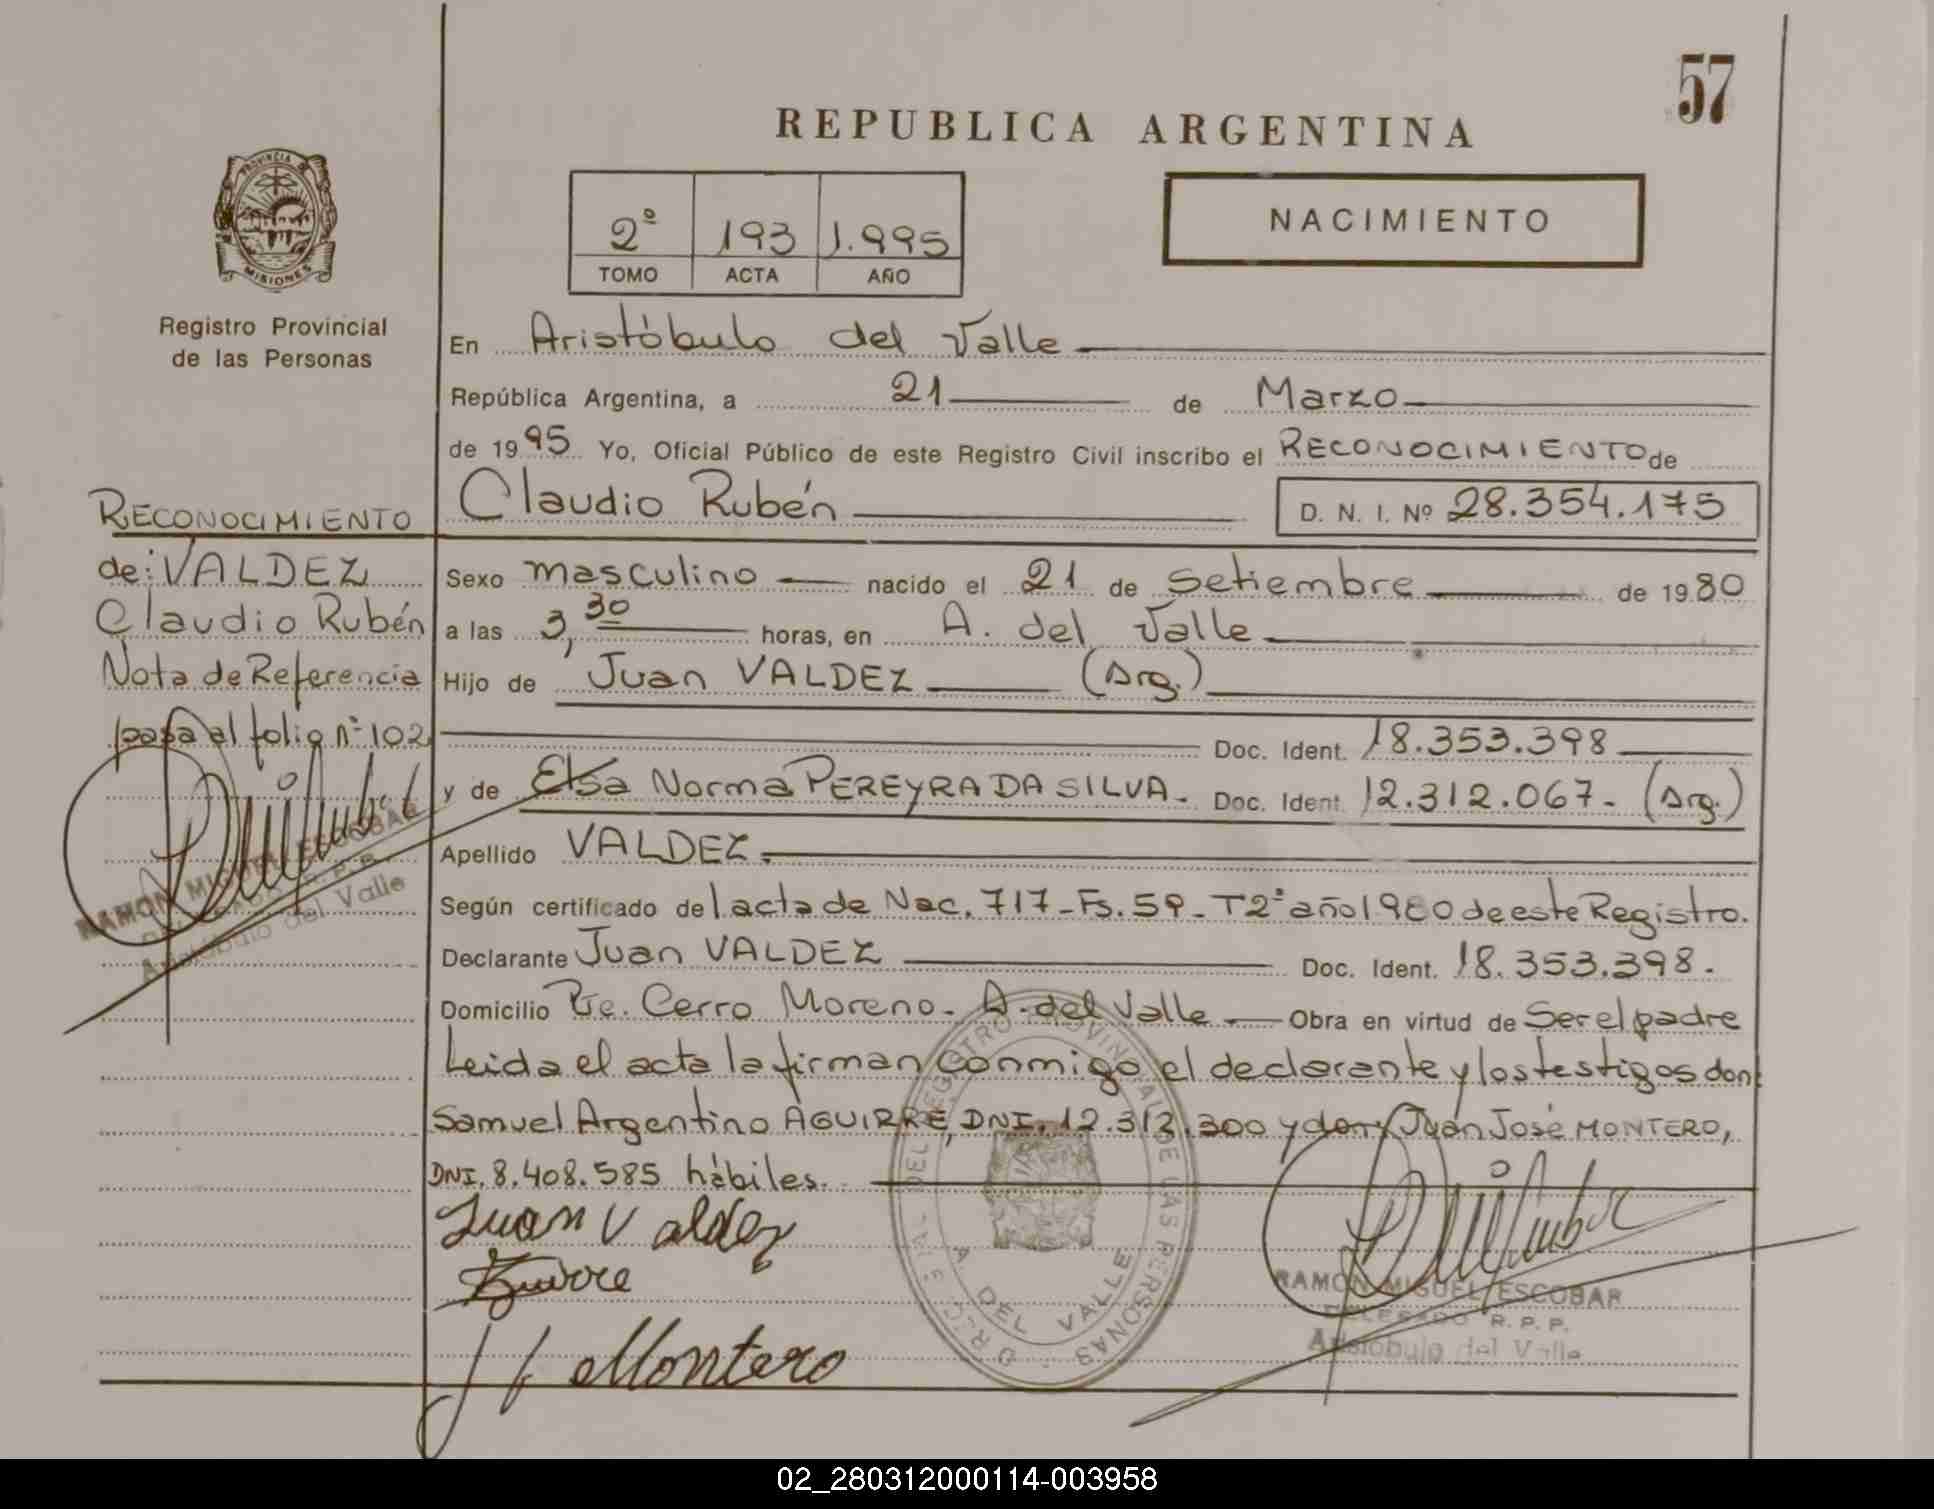 57
REPUBLICA ARGENTINA
PROVINCIA DE
MISIONES
Registro Provincial
de las Personas
2º 193 1.995
TOMO ACTA AÑO
NACIMIENTO
En Aristóbulo del Valle
República Argentina, a 21 de Marzo
de 1995 Yo, Oficial Público de este Registro Civil inscribo el RECONOCIMIENTO de
Claudio Rubén D. N. I. Nº 28.354.175
Sexo masculino nacido el 21 de Setiembre de 1980
a las 3,30 horas, en A. del Valle
Hijo de Juan VALDEZ (Arg.)
Doc. Ident. 18.353.398
y de Elsa Norma PEREYRA DA SILVA. Doc. Ident. 12.312.067- (Arg.)
Apellido VALDEZ.
Según certificado del acta de Nac. 717-Fs. 59-T2º año 1980 de este Registro.
Declarante Juan VALDEZ Doc. Ident. 18.353.398.
Domicilio Pje. Cerro Moreno- A. del Valle Obra en virtud de Ser el padre
Leida el acta la firman conmigo el declarante y los testigos don:
Samuel Argentino AGUIRRE, DNI. 12.312.300 y don Juan José MONTERO,
DNI. 8.408.585 hábiles.
RECONOCIMIENTO
de: VALDEZ
Claudio Rubén
Nota de Referencia
pasa al folio nº 102
RAMON MIGUEL ESCOBAR
DELEGADO R. P. P.
Aristóbulo del Valle
Juan Valdez
J J Montero
REGISTRO PROVINCIAL DE LAS PERSONAS
A. DEL VALLE
RAMON MIGUEL ESCOBAR
DELEGADO R. P. P.
Aristobulo del Valle
02_280312000114-003958